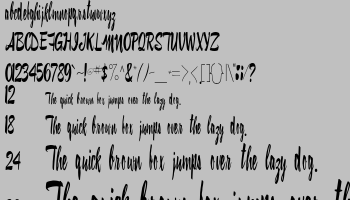 abcdefghijklmnopqrstuvwxyz
ABCDEFGHIJKLMNOPQRSTUVWXYZ
12 The quick brown box jumps over the lazy dog.
18 The quick brown box jumps over the lazy dog.
24 The quick brown box jumps over the lazy dog.
The quick brown box jumps over the